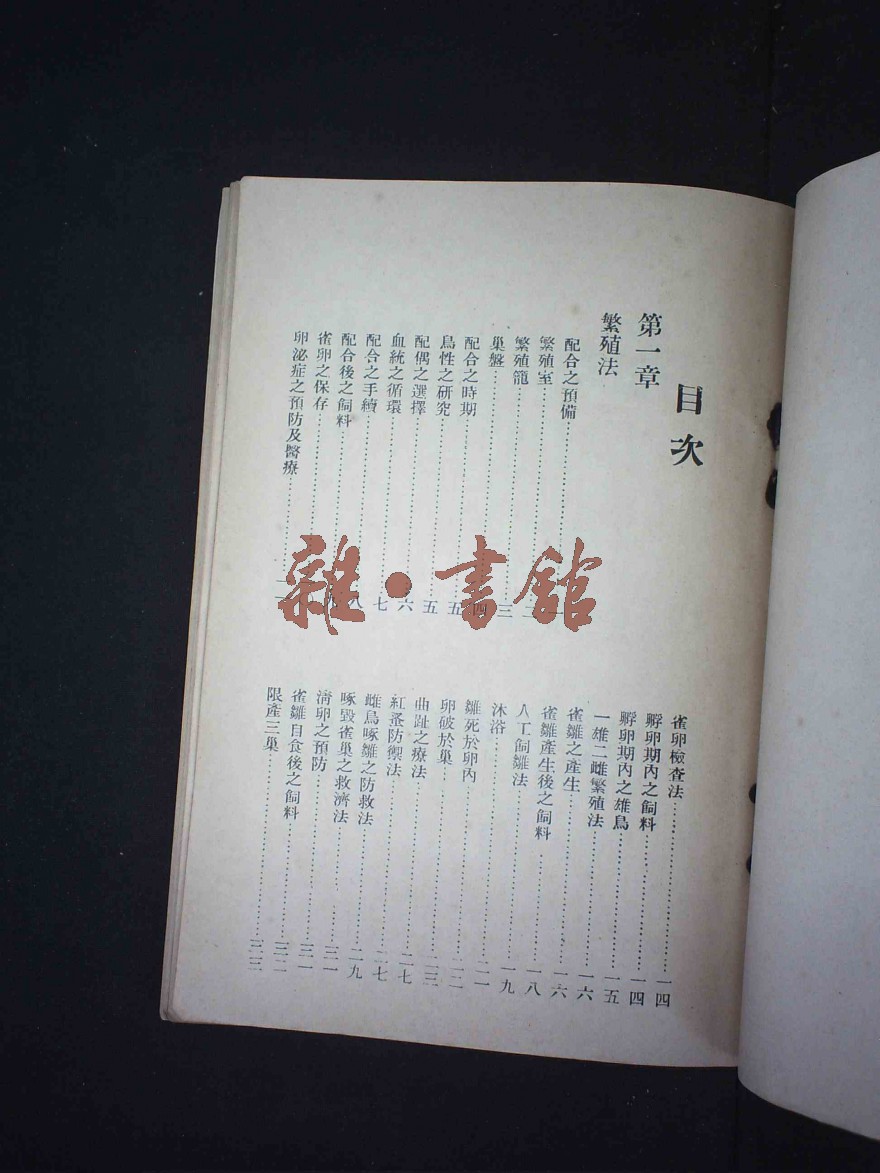 目次
第一章
繁殖法
配合之預備
繁殖室……二
繁殖籠……三
巢盤……四
配合之時期……五
鳥性之研究……五
配偶之選擇……六
血統之循環……七
配合之手續……八
配合後之飼料
雀卵之保存
卵泌症之預防及醫療
雀卵檢查法……一四
孵卵期內之飼料……一四
孵卵期內之雄鳥……一五
一雄二雌繁殖法……一六
雀雛之產生……一六
雀雛產生後之飼料……一八
人工飼雛法……一九
沐浴……二一
雛死於卵內……二二
卵破於巢……二三
曲趾之療法……二七
紅蚤防禦法……二七
雌鳥啄雛之防救法……二九
啄毀雀巢之救濟法……三一
清卵之預防……三一
雀雛自食後之飼料……三二
限產三巢……三三
雜·書館